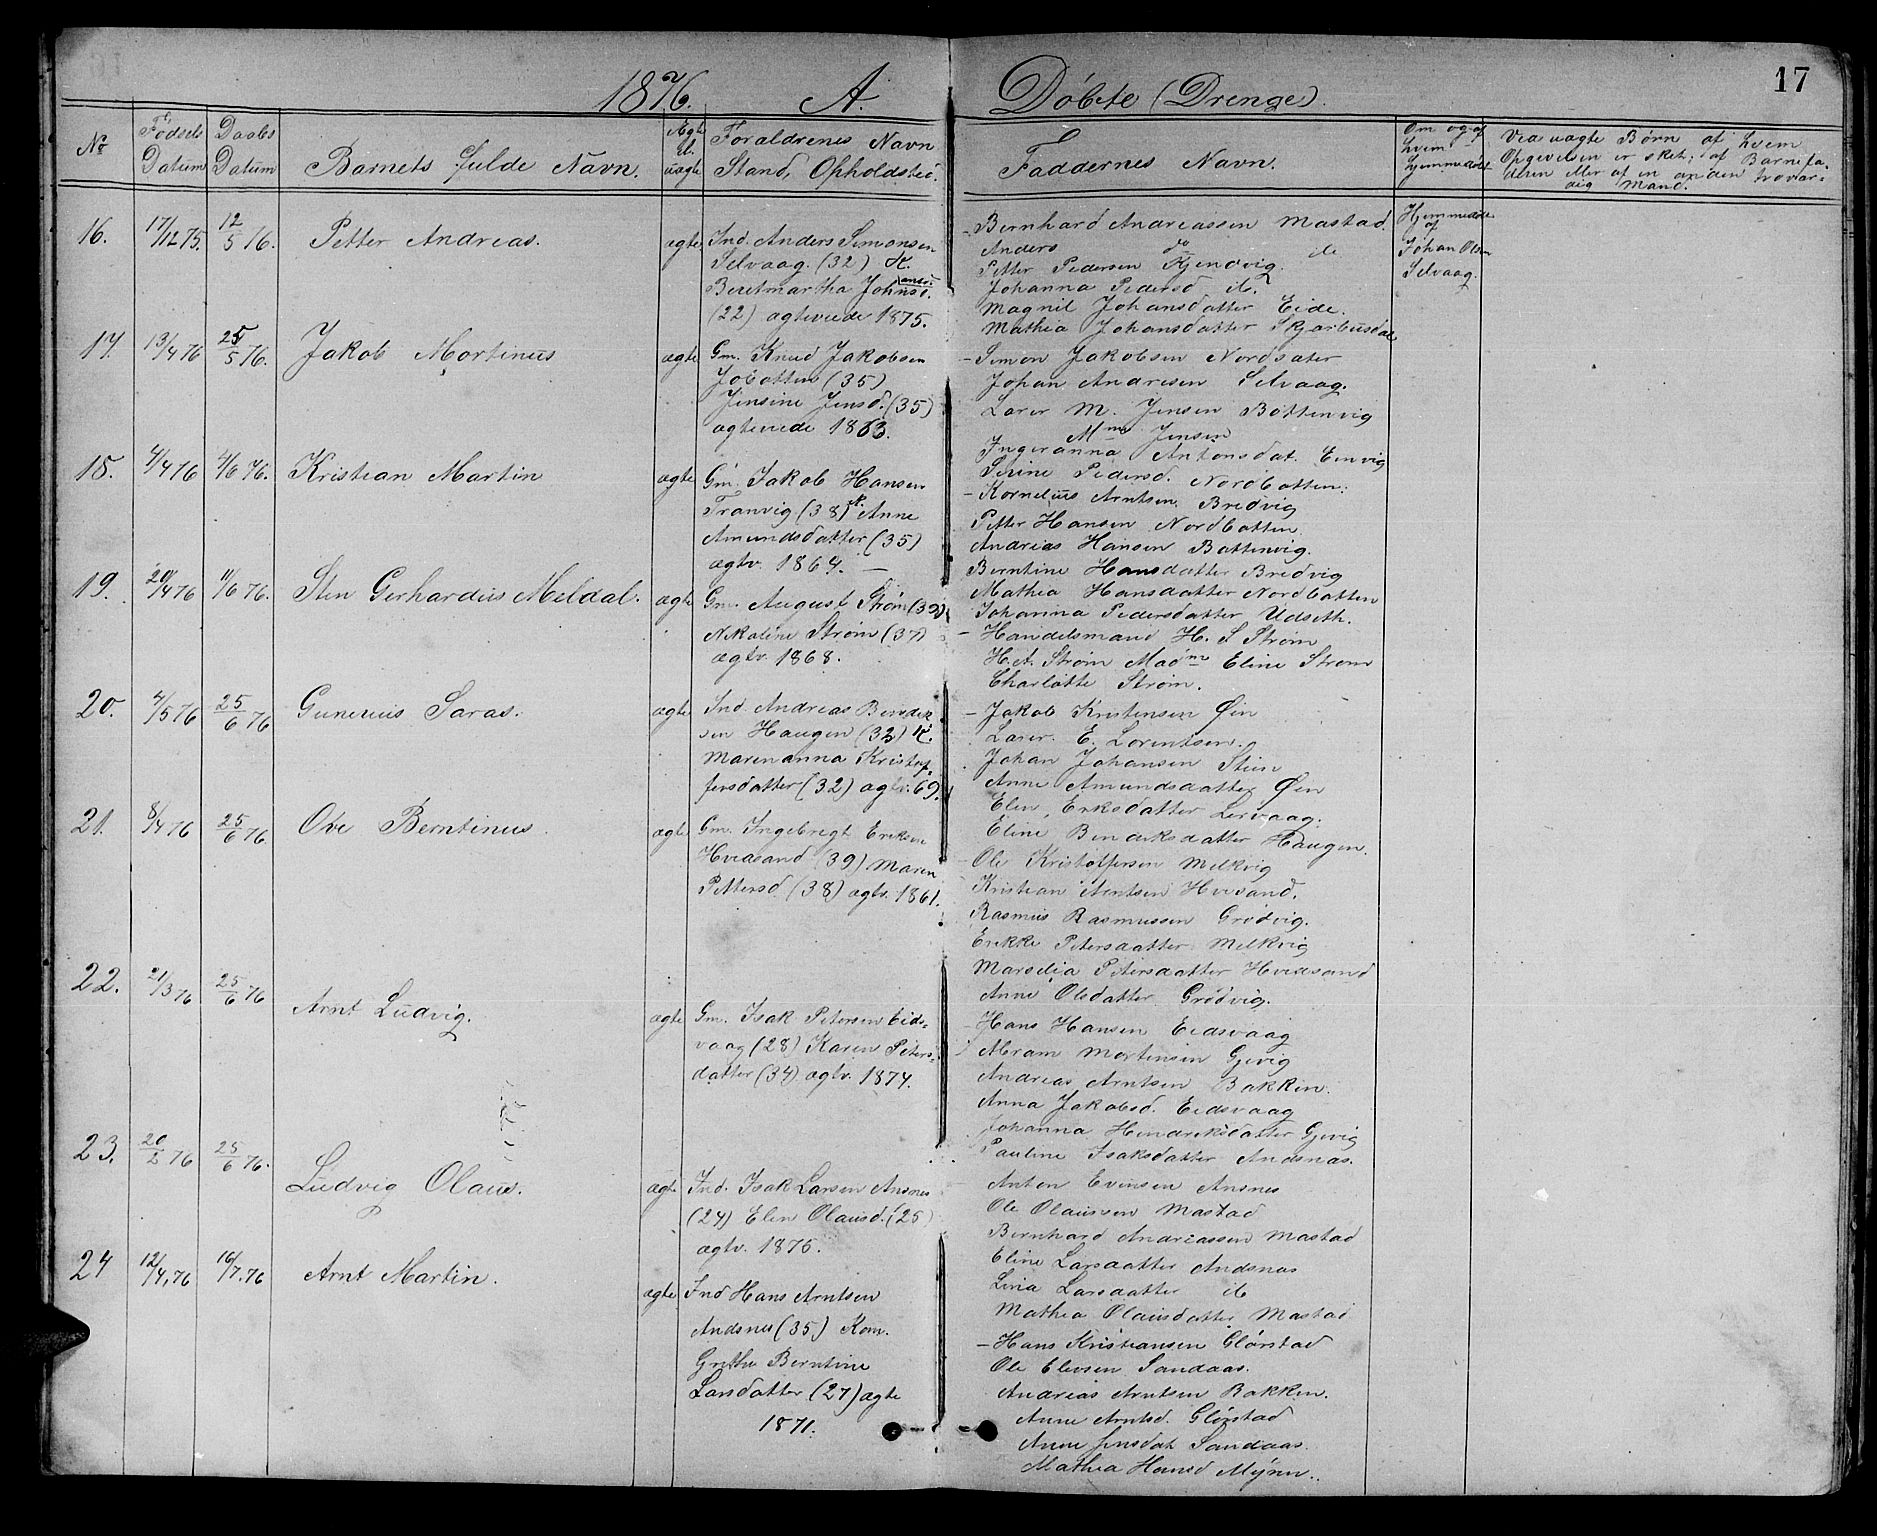 17
1876. A. Döbte (Drenge).
No
Födsels Datum
Daabs Datum
Barnets fulde Navn.
Ægte el. uægte
Foraldrenes Navn
Stand, Opholdsted.
Faddernes Navn.
Om og af hvem hjemmedöbt
Ved uægte Börn af hvem
Opgivelsen er sket; af Barnefa-
deren eller af en anden trovær-
dig Mand.
16. 17/12 75. 12/5 76. Petter Andreas. ægte
Ind. Anders Simonsen
Selvaag. (32) K.
Beretmartha Johnsd.
(22) ægteviede 1875.
Bernhard Andreassen Mastad.
Anders do de
Petter Pedersen Kjendvig.
Johanna Pedersd. ib.
Magnil Johansdatter Eide.
Mathea Johansdatter
Hjemmedöbt
af
Johan Olsen
Selvaag.
17. 13/4 76 25/5 76. Jakob Martinus ægte
Gm. Knud Jakobsen
(35)
Jensine Jensd. (35)
ægteviede 1863.
Simon Jakobsen Nordsæter
Johan Andresen Selvaag.
Lærer M. Jensen Böttenvig
Mme Jensen
Ingeranna Antonsdat. Eenvig
Serine Pedersd. Nordbotten.
18. 4/4 76 4/6 76. Kristian Martin ægte
Gm. Jakob Hansen
Tranvig (38) K. Anne
Amundsdatter (35)
ægtv. 1864. —
Kornelius Arntsen Bredvig
Petter Hansen Nordbotten
Andreas Hansen Bottenvig.
Berntine Hansdatter Bredvig
Mathea Hansdatter Nordbotten
Johanna Pedersdatter Udseth.
19. 20/4 76 11/6 76. Sten Gerhardus Meldal. ægte
Gm. August Ström (39)
Nikoline Ström (37)
ægtv. 1868.
Handelsmand H. S Ström
H. A. Ström Madme Eline Ström
Charlotte Ström.
20. 4/5 76 25/6 76 Gunerius Saras. ægte
Ind. Andreas Bendik
sen Haugen (32) K.
Marenanna Kristof-
fersdatter (32) ægtv. 69.
Jakob Kristensen Øien
Lærer. E. Lorentsen.
Johan Johansen Stien
Anne Amundsdatter Øien
Elen Eriksdatter Lervaag.
Eline Bendiksdatter Haugen.
21. 8/4 76 25/6 76 Ove Berntinus. ægte
Gm. Ingebregt Eriksen
Hvidsand (39) Maren
Pettersd. (38) ægtv. 1861.
Ole Kristoffersen Melkvig
Kristian Arntsen Hvisand.
Rasmus Rasmussen Grödvig.
Erikke Petersdatter Melkvig
Marselia Petersdatter Hvidsand
Anne Olsdatter Grödvig.
22. 21/3 76 25/6 76 Arnt Ludvig. ægte
Gm. Isak Petersen Eids-
vaag (28) Karen Peters-
datter (34) ægtv. 1874.
Hans Hansen Eidsvaag
Abram Mortensen Gjevig
Andreas Arntsen Bakken
Anna Jakobsd. Eidsvaag
Johanna Hendriksdatter Gjevig
Pauline Isaksdatter Andsnæs.
23. 20/2 76 25/6 76. Ludvig Olaus. ægte
Ind. Isak Larsen Ansnes
(24) Elen Olausd. (25)
ægtv. 1875.
Anton Evensen Ansnes
Ole Olaussen Mastad
Bernhard Andreassen Mastad
Eline Larsdatter Andsnæs
Lina Larsdatter ib
Mathea Olausdatter Mastad
24 12/4, 76 16/7. 76 Arnt Martin. ægte
Ind Hans Arntsen
Andsnes (35) Kon.
Grethe Berntine
Larsdatter (27) ægte
1871.
Hans Kristiansen Glörstad
Ole Elevsen Sandaas.
Andreas Arntsen Bakken.
Anne Arntsd. Glörstad
Anne Jensdat Sandaas.
Mathea Hansd Myren.